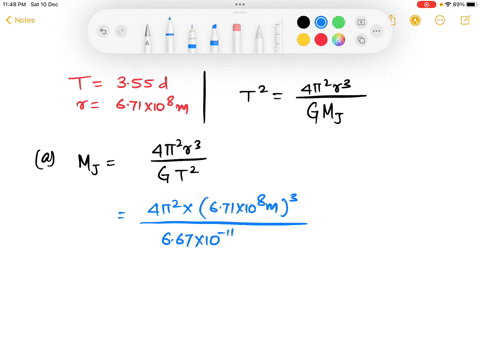 11:48 PM Sat 10 Dec
89%
Notes
T = 3.55 d
r = 6.71×10⁸m
T² = 4π²r³ / GM_J
(a) M_J = 4π²r³ / GT²
= 4π² × (6.71×10⁸m)³ / 6.67×10⁻¹¹